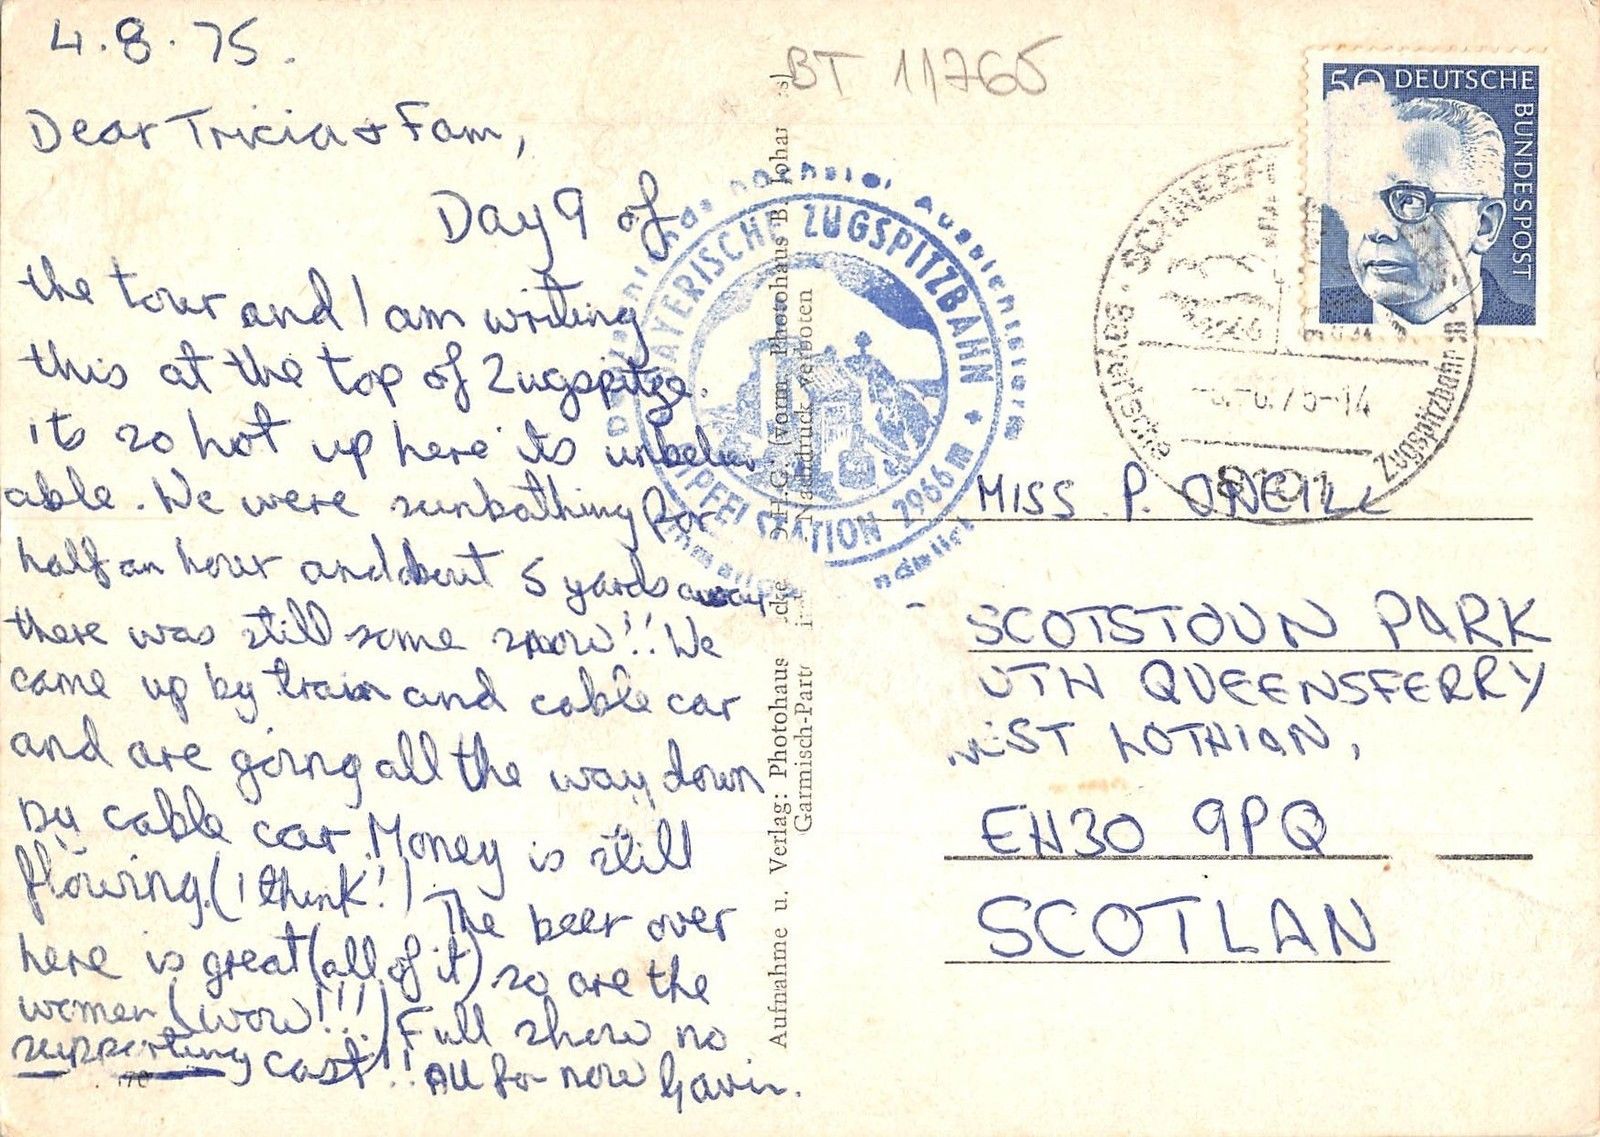 4.8.75.
Dear Tricia & Fam,
Day 9 of
the tour and I am writing
this at the top of Zugspitze.
its so hot up here its unbelur
able. We were sunbathing for
half an hour and about 5 yards away
there was still some snow!! We
came up by train and cable car
and are going all the way down
by cable car. Money is still
flowing. (I think!) The beer over
here is great (all of it) so are the
women (wow!!!) Full show no
supporting cast!! All for now Gavin.
BT 11765
Aufnahme u. Verlag: Photohaus
H.G. (vorm. Photohaus B. Johan
Garmisch-Part
Nachdruck verboten
BAYERISCHE ZUGSPITZBAHN
GIPFELSTATION 2966 m
nächster Aussichts
50 DEUTSCHE
BUNDESPOST
Bayerische
Zugspitzbahn
75-14
8101
MISS P. ONEILL
SCOTSTOUN PARK
UTH QUEENSFERRY
WEST LOTHIAN,
EH30 9PQ
SCOTLAN